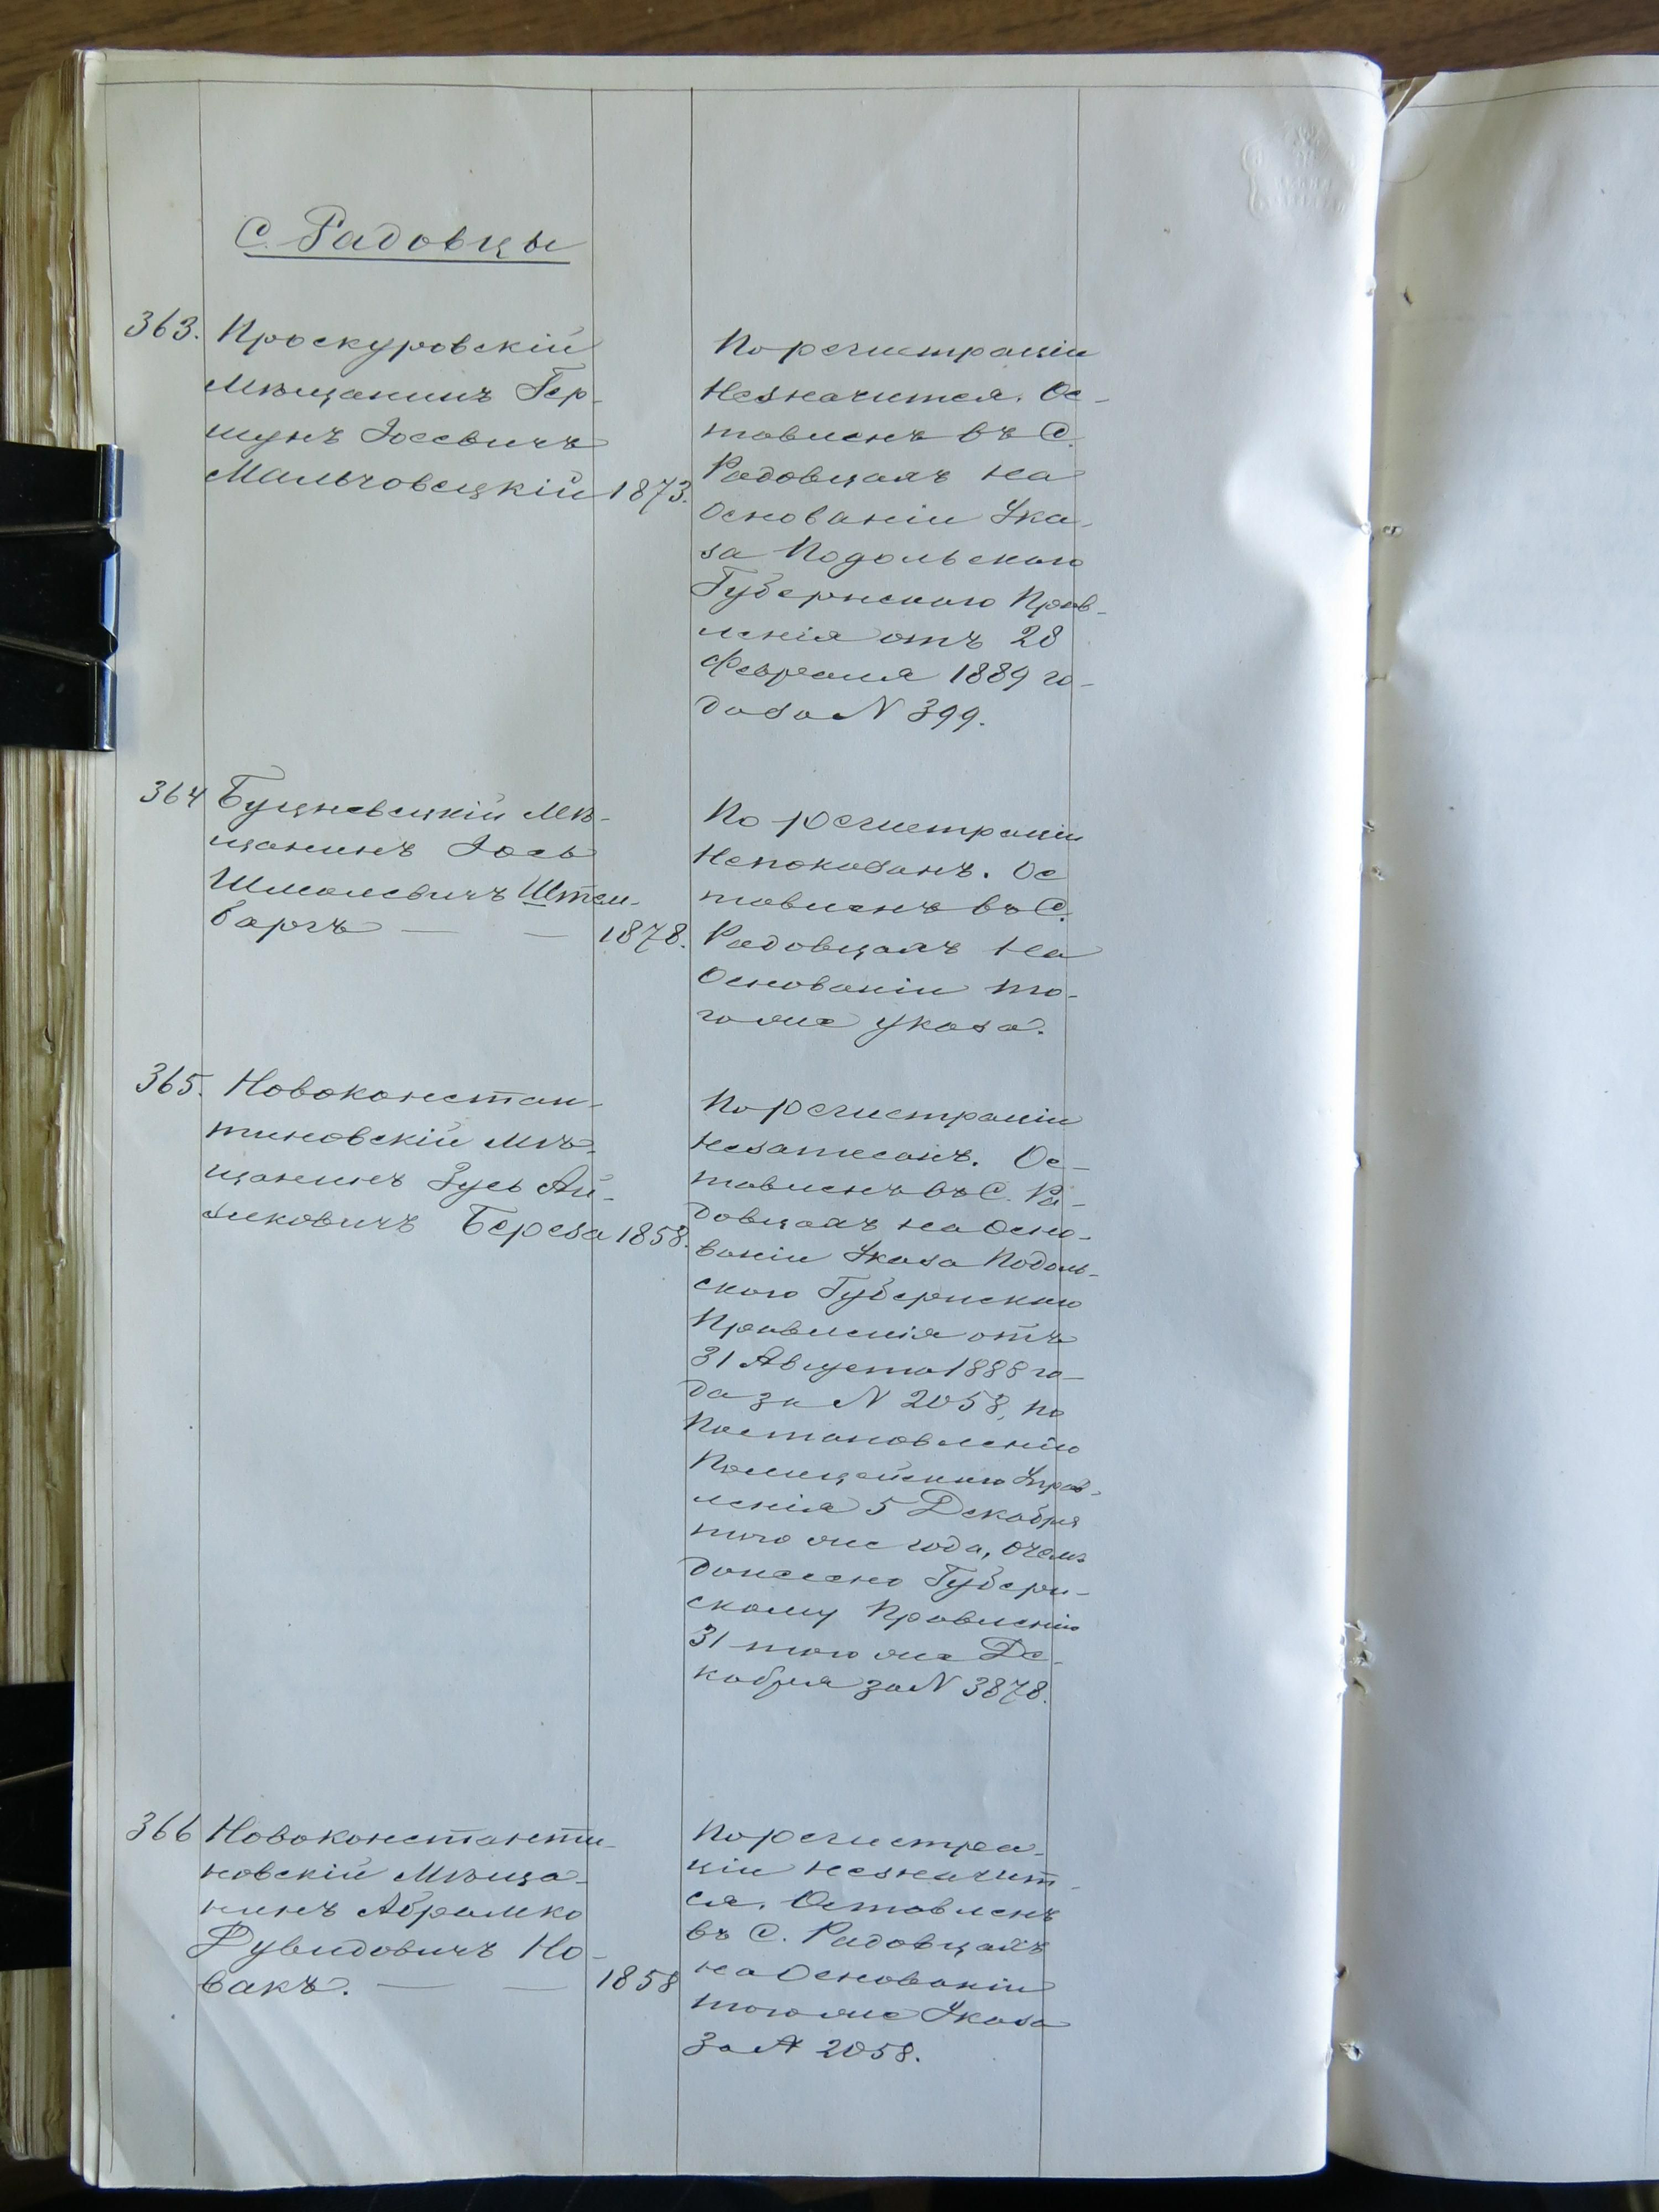 С. Радовцы
363. Проскуровскій
Мѣщанинъ Гер-
шунъ Іосевичъ
Мальчовецкій 1873.
По регистраціи
Незначится. Ос-
тавленъ въ С.
Радовцахъ на
Основаніи Ука-
за Подольскаго
Губернскаго Прав-
ленія отъ 28
Февраля 1889 го-
да за N 399.
364 Буцневецкій Мѣ-
щанинъ Іось
Шмолевичъ Штен-
баргъ — — 1878.
По регистраціи
Непоказанъ. Ос
тавленъ въ С.
Радовцахъ на
Основаніи то-
гоже указа.
365. Новоконстан-
тиновскій Мѣ-
щанинъ Зусь Ай-
зиковичъ Береза 1858.
По регистраціи
Незаписанъ. Ос-
тавленъ въ С. Ра-
довцахъ на Осно-
ваніи Указа Подоль-
скаго Губернскаго
Правленія отъ
31 Августа 1888 го-
да за N 2058, по
Постановленію
Полицейскаго Управ-
ленія 5 Декабря
того же года, о чемъ
донесено Губерн-
скому Правленію
31 того же Де-
кабря за N 3878.
366 Новоконстанти-
новскій Мѣща-
нинъ Абрамко
Дувидовичъ Но-
вакъ. — — 1858
По регистра-
ціи незначит-
ся. Оставленъ
въ С. Радовцахъ
на Основаніи
того же Указа
За N 2058.